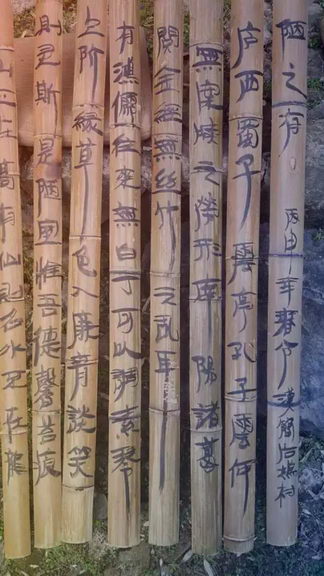 山不在高有仙則名水不在龍
則灵斯是陋室惟吾德馨苔痕
上阶緑草色入廉青談笑
有鴻儒往來無白丁可以調素琴
閱金經無絲竹之乱耳
無案牘之勞形南陽諸葛
庐西蜀子雲亭孔子雲何
陋之有 丙申年春 漢簡